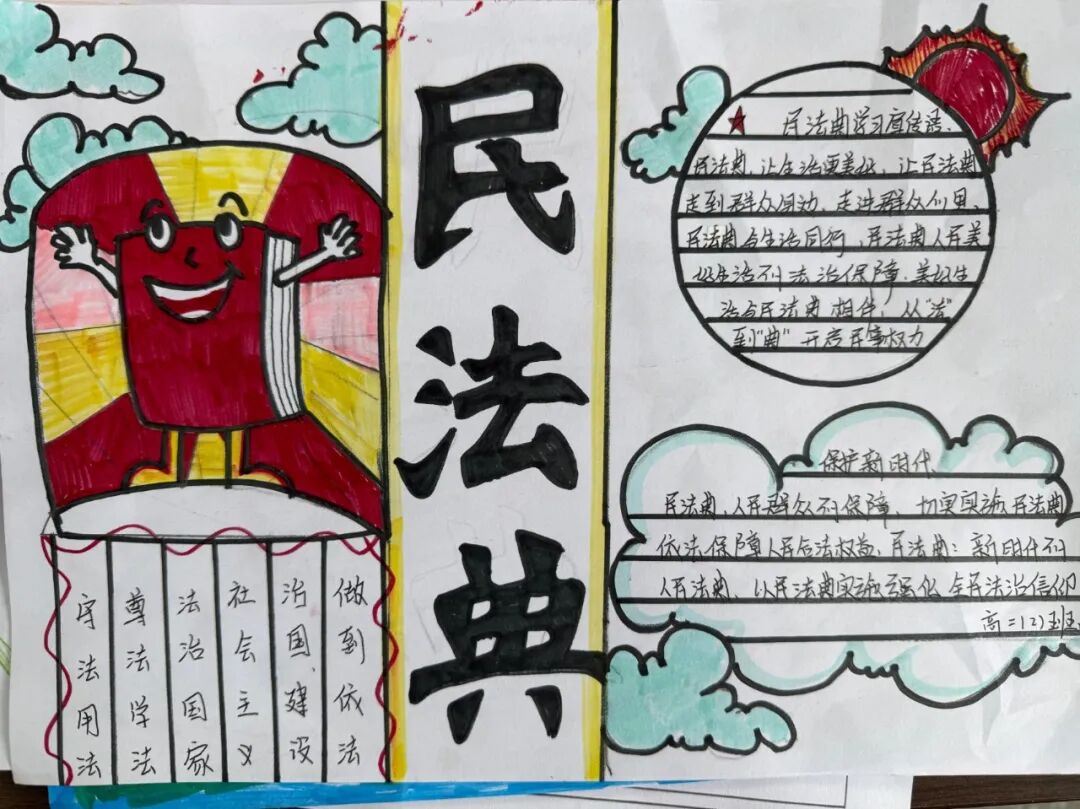 民法典
民法典学习宣传语、
民法典,让生活更美好,让民法典
走到群众身边、走进群众们里、
民法典与生活同行,民法典人民美
好生活的法治保障、美好生
活与民法典相伴,从“法”
到“典”开启民事权力
保护新时代
民法典、人民群众的保障、切实实施民法典
依法保障人民合法权益、民法典:新时代的
人民法典、以民法典实施强化全民法治信仰
高二(2)班
做到依法
治国、建设
社会主义
法治国家
尊法学法
守法用法